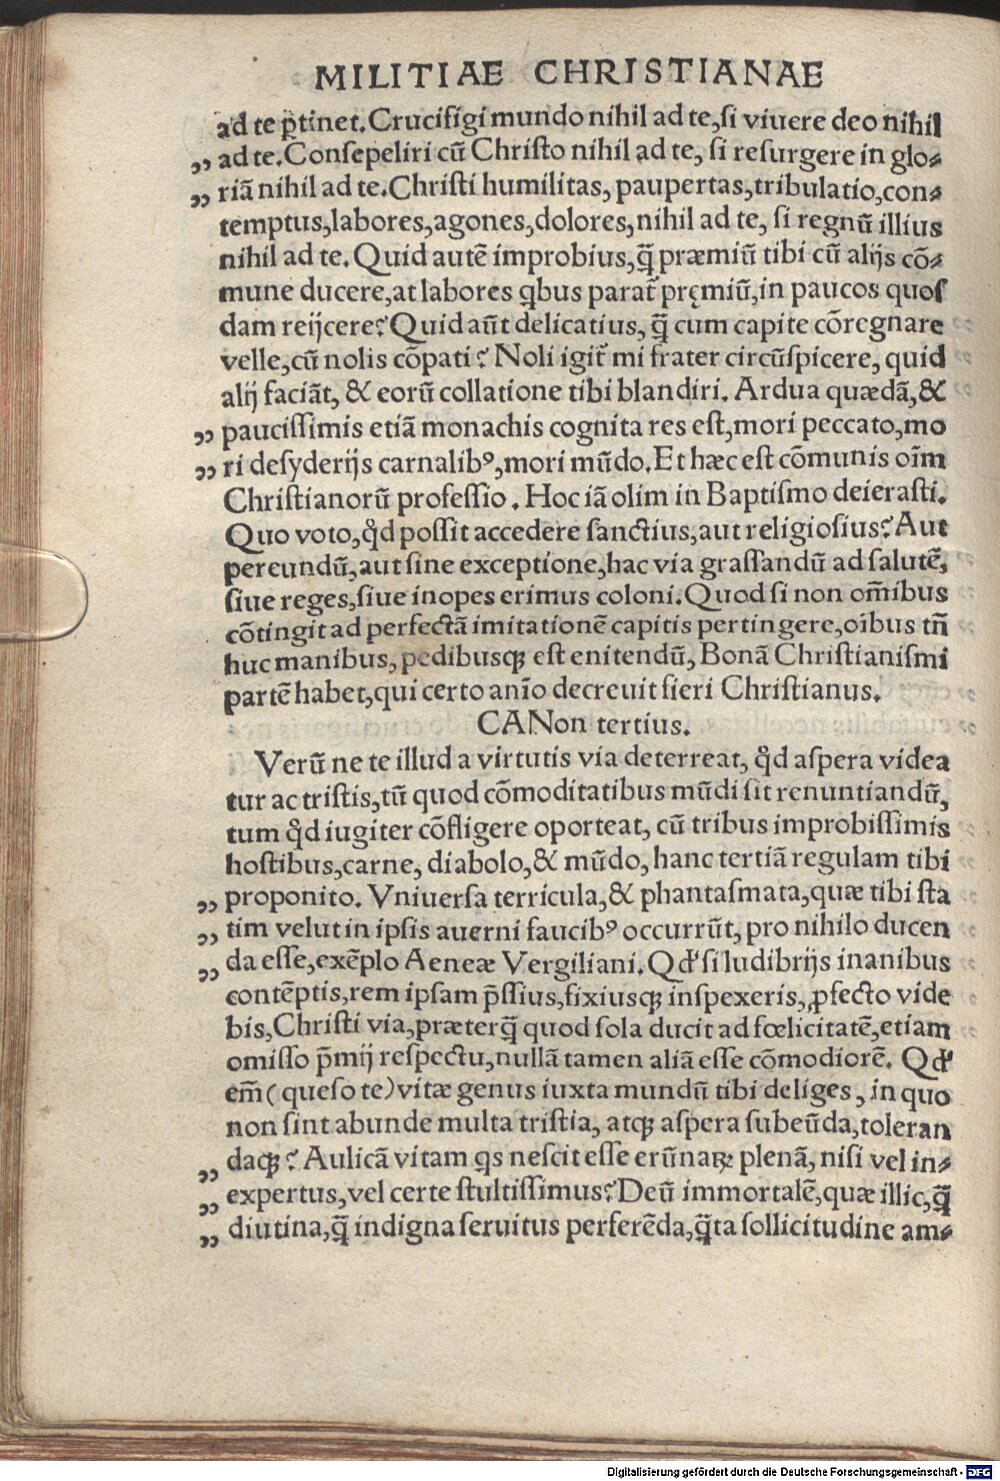 MILITIAE CHRISTIANAE
ad te ꝑtinet. Crucifigi mundo nihil ad te, si viuere deo nihil
„ ad te. Consepeliri cū Christo nihil ad te, si resurgere in glo-
„ riā nihil ad te. Christi humilitas, paupertas, tribulatio, con-
temptus, labores, agones, dolores, nihil ad te, si regnū illius
nihil ad te. Quid autē improbius, q̄ præmiū tibi cū alijs cō-
mune ducere, at labores qbus parat̃ pręmiū, in paucos quos
dam reijcere? Quid aūt delicatius, q̄ cum capite cōregnare
velle, cū nolis cōpati? Noli igit̃ mi frater circūspicere, quid
alij faciāt, & eorū collatione tibi blandiri. Ardua quædā, &
„ paucissimis etiā monachis cognita res est, mori peccato, mo
„ ri desyderijs carnalibꝰ, mori mūdo. Et hæc est cōmunis oīm
Christianorū professio. Hoc iā olim in Baptismo deierasti.
Quo voto, qd̛ possit accedere sanctius, aut religiosius? Aut
pereundū, aut sine exceptione, hac via grassandū ad salutē,
siue reges, siue inopes erimus coloni. Quod si non om̄ibus
cōtingit ad perfectā imitationē capitis pertingere, oībus tn̄
huc manibus, pedibusqꝫ est enitendū, Bonā Christianismi
partē habet, qui certo anīo decreuit fieri Christianus.
CANon tertius.
Verū ne te illud a virtutis via deterreat, qd̛ aspera videa
tur ac tristis, tū quod cōmoditatibus mūdi sit renuntiandū,
tum qd̛ iugiter cōfligere oporteat, cū tribus improbissimis
hostibus, carne, diabolo, & mūdo, hanc tertiā regulam tibi
„ proponito. Vniuersa terricula, & phantasmata, quæ tibi sta
„ tim velut in ipsis auerni faucibꝰ occurrūt, pro nihilo ducen
„ da esse, exēplo Aeneæ Vergiliani. Qd̛ si ludibrijs inanibus
contēptis, rem ipsam p̄ssius, fixiusqꝫ inspexeris, ꝓfecto vide
bis, Christi via, præterq̄ quod sola ducit ad fœlicitatē, etiam
omisso p̄mij respectu, nullā tamen aliā esse cōmodiorē. Qd̛
em̄ (queso te) vitæ genus iuxta mundū tibi deliges, in quo
non sint abunde multa tristia, atqꝫ aspera subeūda, toleran
„ daqꝫ? Aulicā vitam qs nescit esse erūnaꝝ plenā, nisi vel in-
„ expertus, vel certe stultissimus? Deū immortalē, quæ illic, q̄
„ diutina, q̄ indigna seruitus perferēda, q̄ta sollicitudine am-
Digitalisierung gefördert durch die Deutsche Forschungsgemeinschaft - DFG